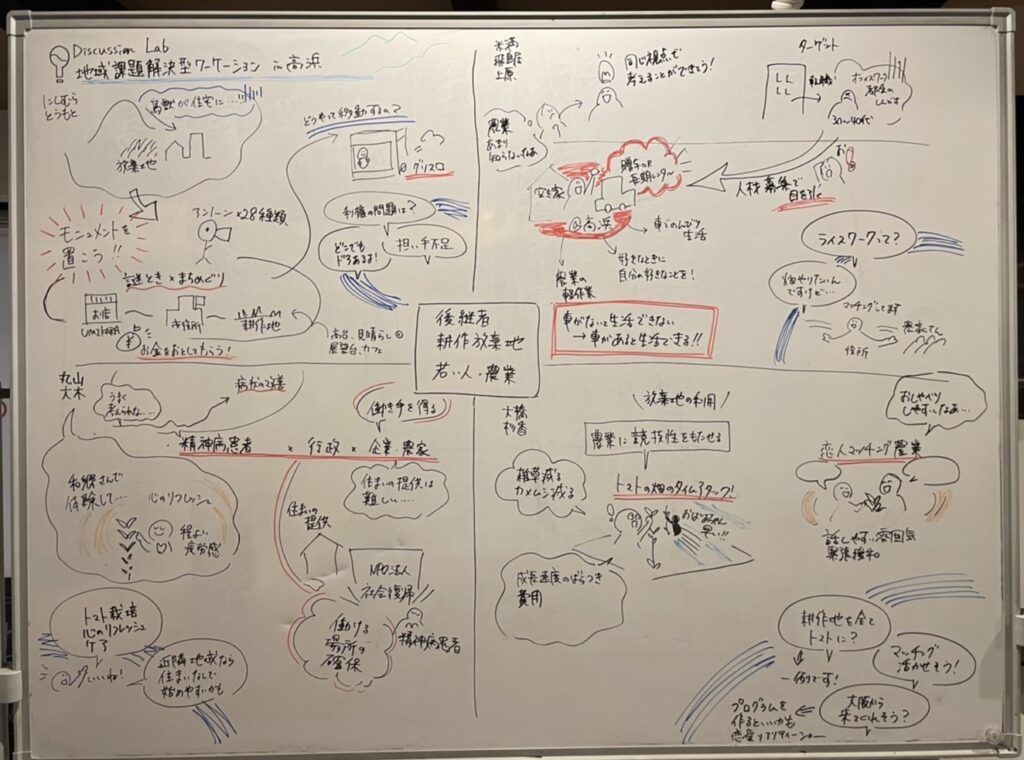 Discussion Lab
地域課題解決型ワーケーション in 高浜
にしむら
とうもと
鳥獣が住宅に…
放棄地
モニュメントを
置こう!!
アントーン×28種類
謎とき × まちめぐり
お店
UMIKARA
市役所
耕作地
¥
お金をおとしてもらう!
高台、見晴らし◎
展望台、カフェ
どうやって移動するの?
グリスロ
利権の問題は?
どこでも
ドアあるよ!
担い手不足
米満
飛騨
上原
同じ視点で
考えることができそう!
農業
あまり
知らないなあ
ターゲット
LL
LL
転職
オフィスワーク
都会の
しんどさ
30〜40代
お!
人材募集で
目を引く
空き家
贈与 or
長期レンタ〜
@高浜
車でのんびり
生活
好きなときに
自分の好きなことを!
農業の
軽作業
車がないと生活できない
→車があると生活できる!!
ライスワークって?
畑やりたいん
ですけど…
マッチングします
役所
農家さん
後継者
耕作放棄地
若い人・農業
丸山
大木
うまく
考えられな…
病状の改善
働き手を得る
精神病患者 × 行政 × 企業・農家
和郷さんで
体験して…
心のリフレッシュ
程よい
疲労感
住まいの
提供
住まいの提供は
難しい…
NPO法人
社会復帰
働ける
場所の
確保
精神病患者
トマト栽培
心のリフレッシュ
ケア
いいね!
近隣地域なら
住まいなしで
始めやすいかも
大橋
杉香
\放棄地の利用/
農業に競技性をもたせる
トマトの畑のタイムアタック!
雑草減る
カメムシ減る
おばあちゃん
早い!!
成長速度のばらつき
費用
おしゃべり
しやすいなあ…
恋人マッチング農業
話しやすい雰囲気
緊張緩和
耕作地を全て
トマトに?
一例です!
マッチング
活かせそう!
大阪から
来てくれそう?
プログラムを
作るといいかも
恋愛リアリティーショー